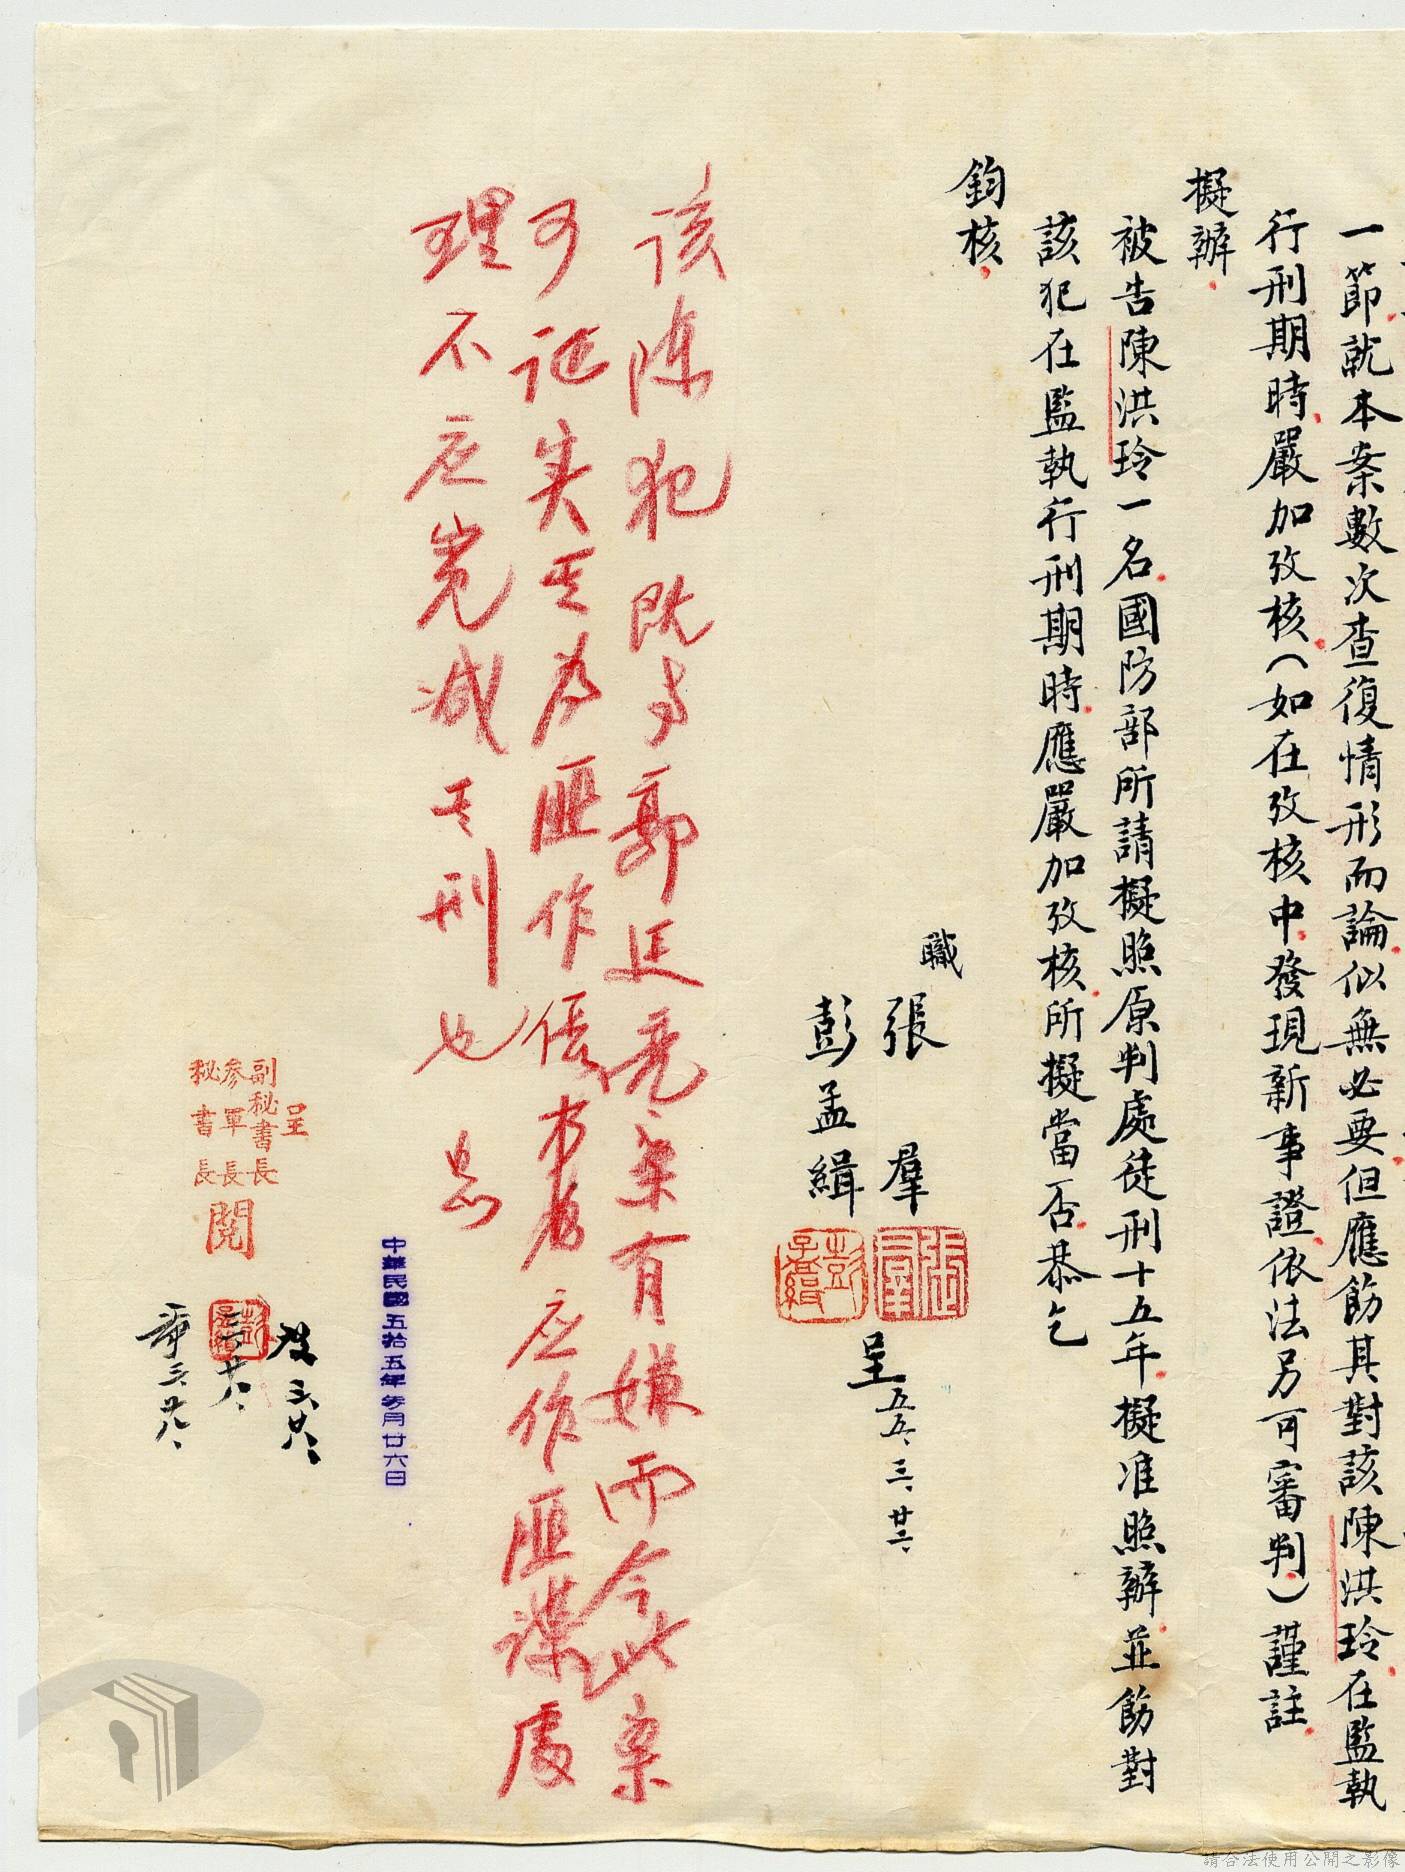 一節就本案數次查復情形而論似無必要但應飭其對該陳洪玲在監執
行刑期時嚴加攷核（如在攷核中發現新事證依法另可審判）謹註
擬辦
被告陳洪玲一名國防部所請擬照原判處徒刑十五年擬准照辦並飭對
該犯在監執行刑期時應嚴加攷核所擬當否恭乞
鈞核
職
張羣
彭孟緝
呈
五五、三、廿六、
該陳犯既与郭廷亮案有嫌而今此案
可证实其为匪作
应作匪諜處
理不应宽减其刑也
中華民國五拾五年 月廿六日
呈
副秘書長
參軍長
秘書長
閱
三、廿八、
請合法使用公開之影像